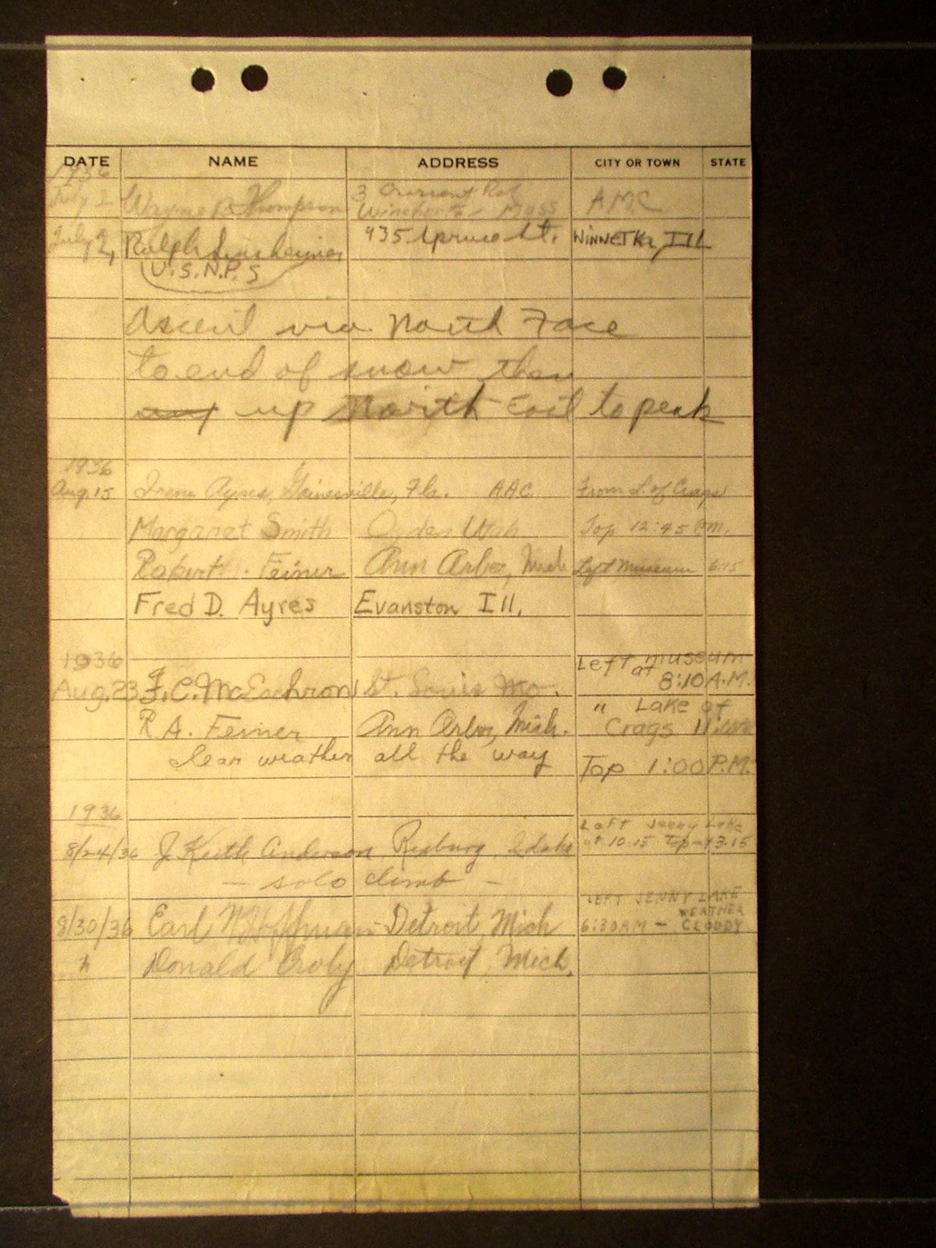 DATE NAME ADDRESS CITY OR TOWN STATE
1936
July 2 Wayne B. Thompson 3 Crescent Rd. A.M.C.
Mass
July 2, Ralph 435 Spruce St. WINNETKA, ILL
U.S.N.P.S
Ascent via North Face
to end of snow then
up North East to peak
1936
Aug. 15 Irene Ayres, Gainesville, Fla. AAC From L. of Crags
Margaret Smith Ogden Utah Top 12:45 P.M.
Robert Feiner Ann Arbor, Mich Left Museum 6:15
Fred D. Ayres Evanston Ill.
1936 Left at museum
Aug. 23 F. C. McEachron St. Louis Mo. 8:10 A.M.
R A. Feiner Ann Arbor, Mich. " Lake of Crags 11:
clear weather all the way Top 1:00 P.M.
1936
8/24/36 J Keith Anderson, Rexburg, Idaho Left Jenny Lake at 10.15 Top - 3.15
— solo climb —
8/30/36 Earl Hoffman - Detroit Mich LEFT JENNY LAKE 6:30 AM - WEATHER CLOUDY
" Donald Detroit, Mich.